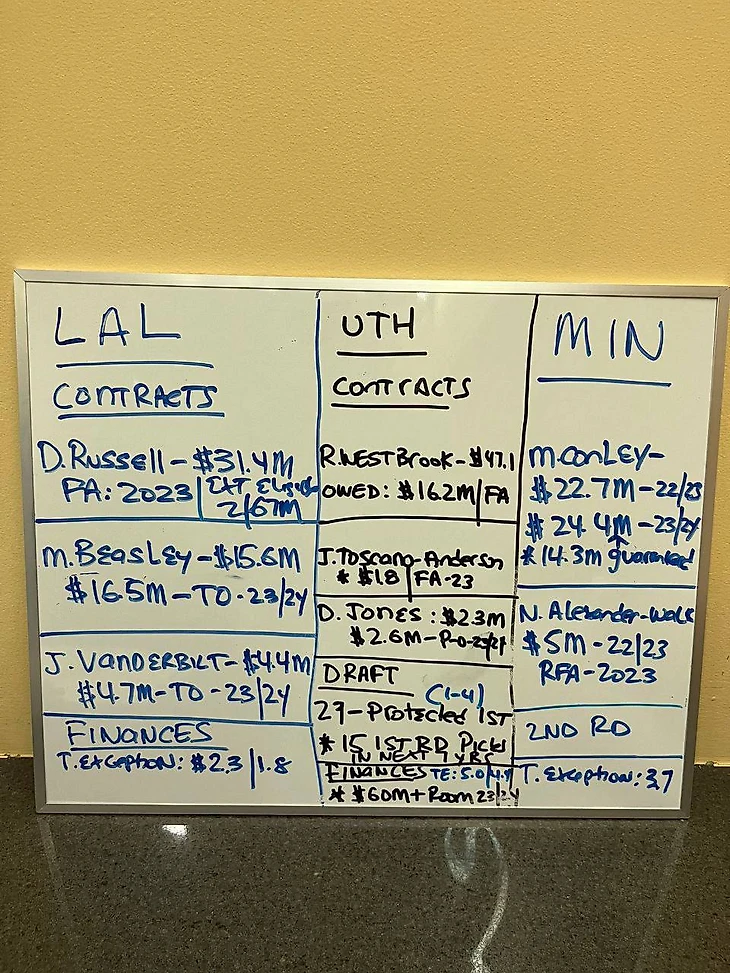 LAL
CONTRACTS
D. RUSSELL - $31.4M
FA: 2023 | EXT Eligible
2/67M
M. BEASLEY - $15.6M
$16.5M - TO - 23/24
J. VANDERBILT - $4.4M
$4.7M - TO - 23/24
FINANCES
T. EXCEPTION: $2.3 | 1.8
UTH
CONTRACTS
R. WESTBROOK - $47.1
OWED: $16.2M | FA
J. TOSCANO-ANDERSON
* $1.8 | FA-23
D. JONES: $2.3M
$2.6M - P-O-23/24
DRAFT
(1-4)
27 - PROTECTED 1ST
* 15 1ST RD PICKS
IN NEXT 7 YRS
FINANCES TE: 5.0/4.9
* $60M + ROOM 23/24
MIN
M. CONLEY -
$22.7M - 22/23
$24.4M - 23/24
* 14.3M guaranteed
N. ALEXANDER-WALK
$5M - 22/23
RFA - 2023
2ND RD
T. EXCEPTION: 3.7